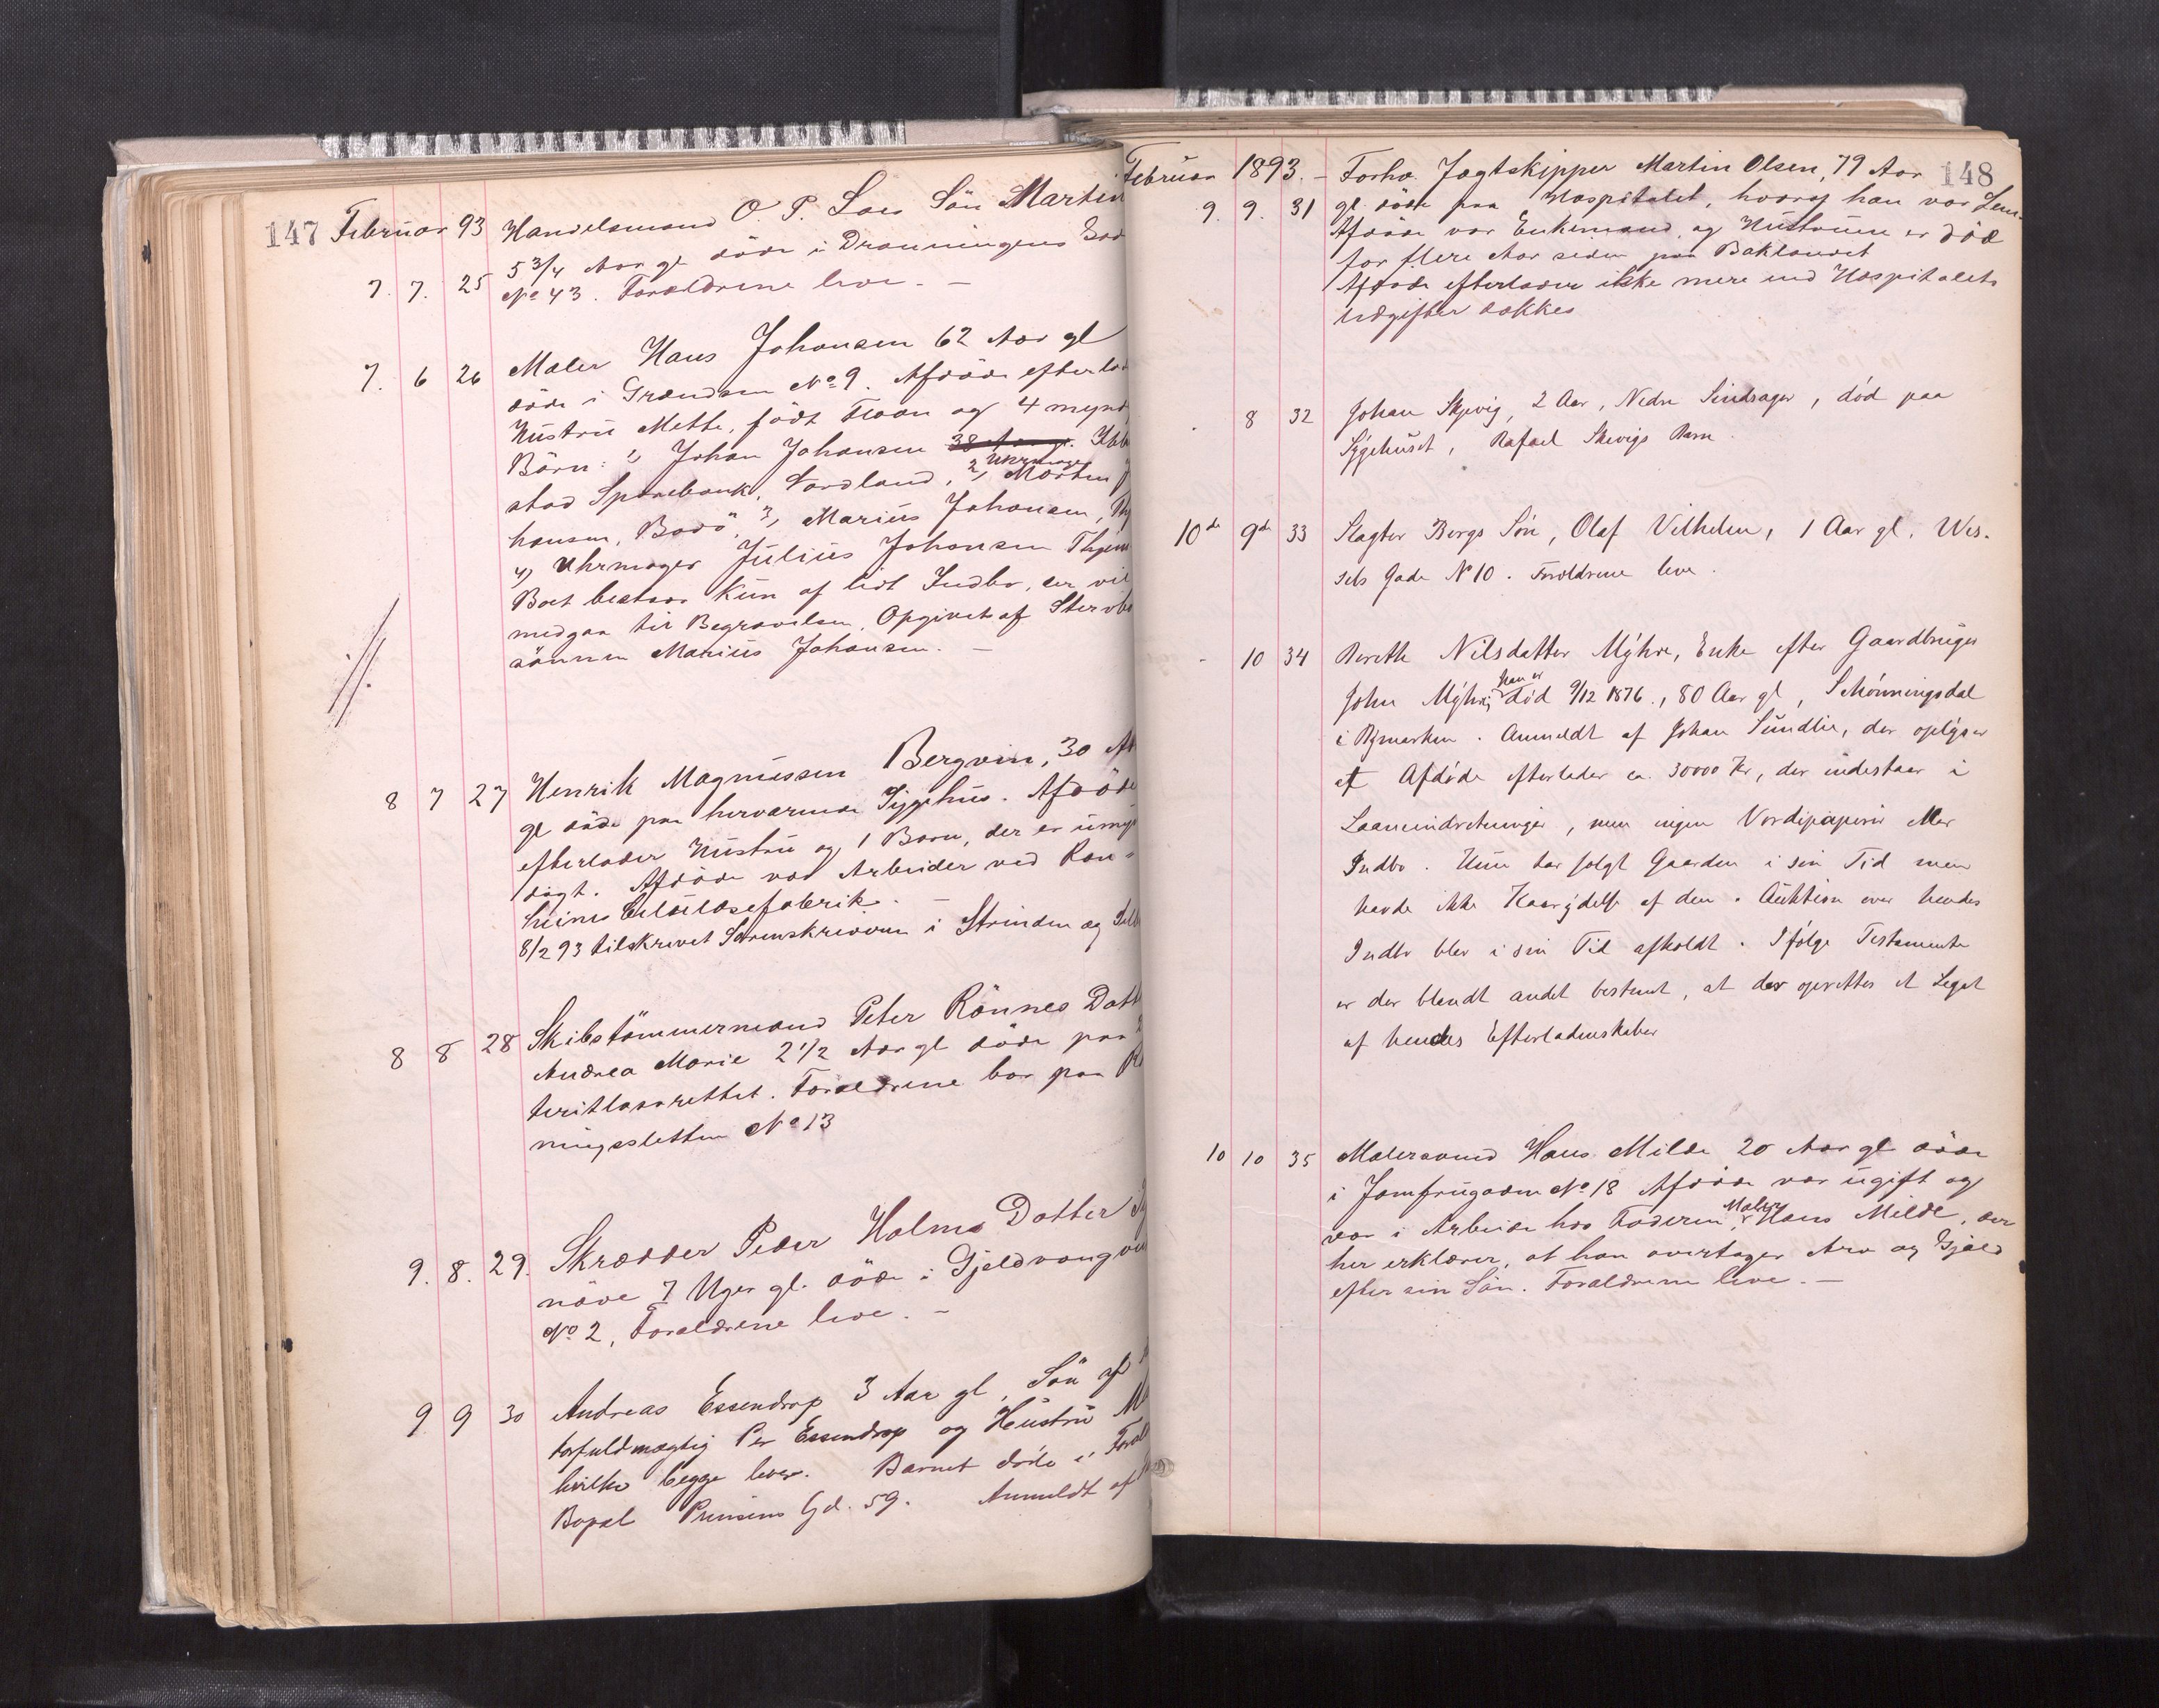 147 Februar 93 Handelsmand O. P. Laes Sön Martin
5 3/4 Aar gl döde i Dronningens Gad
7. 7. 25 No 43. Forældrene leve. —
7. 6 26 Maler Hans Johansen 62 Aar gl
döde i Grændsen No 9. Afdöde efterlod
Hustru Mette, födt Floan og 4 mynd
Börn: 1, Johan Johansen 38 Aar gl.
stad Sparebank, Nordland, 2, Uhrmager Morten J
hansen, Bodö, 3, Marius Johansen, Th
4, Uhrmager Julius Johansen Thjem
Boet bestaar kun af lidt Indbo, der vil
medgaa til Begravelsen. Opgivet af Stervbo
sönnen Marius Johansen. —
8 7 27 Henrik Magnussen Bergvin, 30 Aa
gl döde paa herværende Sygehus. Afdöde
efterlader Hustru og 1 Barn, der er umyn
digt. Afdöde var Arbeider ved Ran-
heims Celulosefabrik. —
8/2 93 tilskrevet Sorenskriveren i Strinden og Selb
8 8 28 Skibstömmermand Peter Rönnes Datt
Andrea Marie 2 1/2 Aar gl döde paa
teritlasarettet. Forældrene bor paa
ningsletten No 13
9. 8. 29. Skrædder Peder Holms Datter
növe 7 Uger gl. döde i Gjeldvangvei
No 2, Forældrene leve. —
9 9 30 Andreas Essendrop 3 Aar gl, Sön af
torfuldmægtig Per Essendrop og Hustru
hvilke begge lever. Barnet döde i Foræl
Bopæl Prinsens Gd. 59. Anmeldt af
Februar 1893. — Forhv. Jagtskipper Martin Olsen, 79 Aar 148
9. 9. 31 gl. döde paa Hospitalet, hvoraf han var Lem.
Afdöde var Enkemand og Hustruen er död
for flere Aar siden paa Baklandet
Afdöde efterlader ikke mere end Hospitalets
Udgifter dækkes
8 32 Johan Skjevig, 2 Aar, Nedre Sindsager, död paa
Sygehuset, Rafael Skevigs Barn.
10de 9de 33 Slagter Bergs Sön, Olaf Vilhelm, 1 Aar gl. Wes.
sels Gade No 10. Forældrene leve.
- 10 34 Berethe Nilsdatter Myhre, Enke efter Gaardbruger
John Myhre, han er död 9/12 1876., 80 Aar gl, Schönningsdal
i Bymarken. Anmeldt af Johan Sundlie, der oplyser
at Afdöde efterlader ca. 30000 Kr, der indestaar i
Laaneindretninger, men ingen Verdipapirer eller
Indbo. Hun har solgt Gaarden i sin Tid men
havde ikke Kaarydelse af den. Auktion over hendes
Indbo blev i sin Tid afholdt. Ifölge Testamente
er der blandt andet bestemt, at der oprettes et Legat
af hendes Efterladenskaber
10 10 35 Malersvend Hans Milde 20 Aar gl döde
i Jomfrugaden No 18 Afdöde var ugift og
var i Arbeide hos Faderen, Maler Hans Milde, der
her erklærer, at han overtager Arv og Gjæld
efter sin Sön. Forældrene leve. —